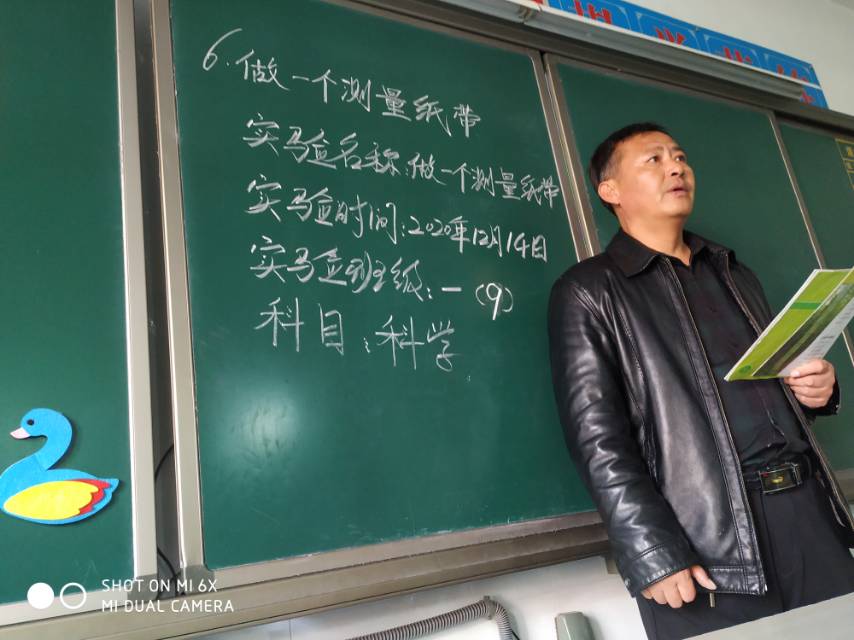 6. 做一个测量纸带
实验名称:做一个测量纸带
实验时间:2020年12月14日
实验班级:一(9)
科目:科学
SHOT ON MI 6X
MI DUAL CAMERA